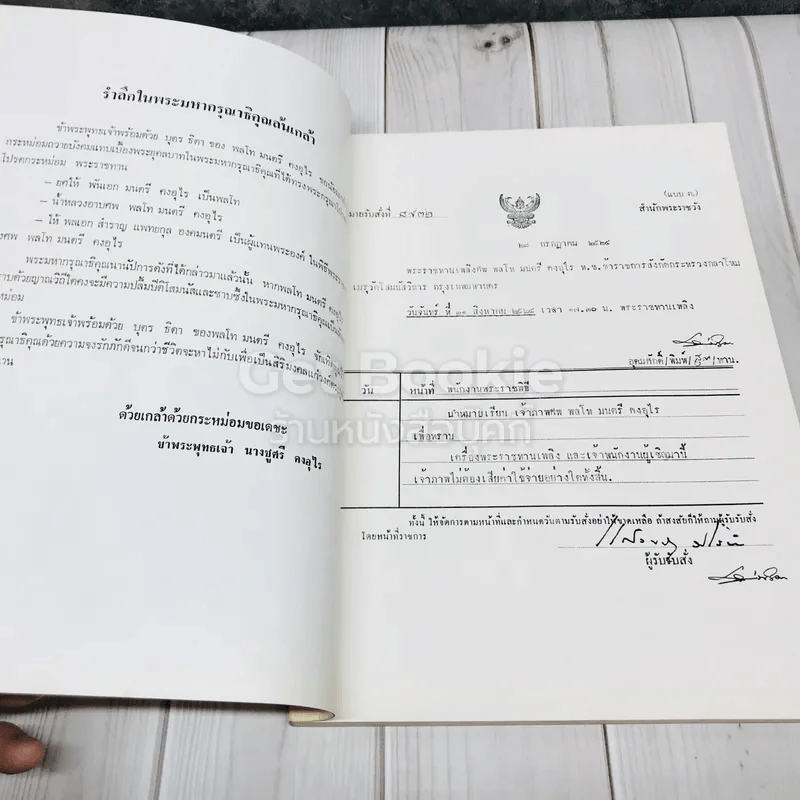 รำลึกในพระมหากรุณาธิคุณล้นเกล้า
ข้าพระพุทธเจ้าพร้อมด้วย บุตร ธิดา ของ พลโท มนตรี คงอุไร
กระหม่อมถวายบังคมแทบเบื้องพระยุคลบาทในพระมหากรุณาธิคุณที่ได้ทรงพระกรุณา
โปรดกระหม่อม พระราชทาน
– ยศให้ พันเอก มนตรี คงอุไร เป็นพลโท
– น้ำหลวงอาบศพ พลโท มนตรี คงอุไร
– ให้ พลเอก สำราญ แพทยกุล องคมนตรี เป็นผู้แทนพระองค์ ในพิธีพระราช
ศพ พลโท มนตรี คงอุไร
พระมหากรุณาธิคุณนานัปการดังที่ได้กล่าวมาแล้วนั้น หากพลโท มนตรี คงอุไร
ราบด้วยญาณวิถีใดคงจะมีความปลื้มปิติโสมนัสและซาบซึ้งในพระมหากรุณาธิคุณเป็น
หม่อม
ข้าพระพุทธเจ้าพร้อมด้วย บุตร ธิดา ของพลโท มนตรี คงอุไร
รุณาธิคุณด้วยความจงรักภักดีจนกว่าชีวิตจะหาไม่กับเพื่อเป็นสิริมงคลแก่วงศ์
ทาน
ด้วยเกล้าด้วยกระหม่อมขอเดชะ
ข้าพระพุทธเจ้า นางชูศรี คงอุไร
(แบบ ๓)
มายรับสั่งที่ ๘๙๓๒
สำนักพระราชวัง
๒๘ กรกฎาคม ๒๕๒๔
พระราชทานเพลิงศพ พลโท มนตรี คงอุไร ท.ช. ข้าราชการสังกัดกระทรวงกลาโหม
เมรุวัดโสมนัสวิหาร กรุงเทพมหานคร
วันจันทร์ ที่ ๓๑ สิงหาคม ๒๕๒๔ เวลา ๑๗.๓๐ น. พระราชทานเพลิง
อุดมศักดิ์/พิมพ์/ /ทาน.
วัน หน้าที่ พนักงานพระราชพิธี
นำหมายเรียน เจ้าภาพศพ พลโท มนตรี คงอุไร
เพื่อทราบ
เครื่องพระราชทานเพลิง และเจ้าพนักงานผู้เชิญมานี้
เจ้าภาพไม่ต้องเสียค่าใช้จ่ายอย่างใดทั้งสิ้น.
ทั้งนี้ ให้จัดการตามหน้าที่และกำหนดวันตามรับสั่งอย่าให้ขาดเหลือ ถ้าสงสัยก็ให้ถามผู้รับรับสั่ง
โดยหน้าที่ราชการ
ผู้รับรับสั่ง
Get Bookie
ร้านหนังสือบุคกี้